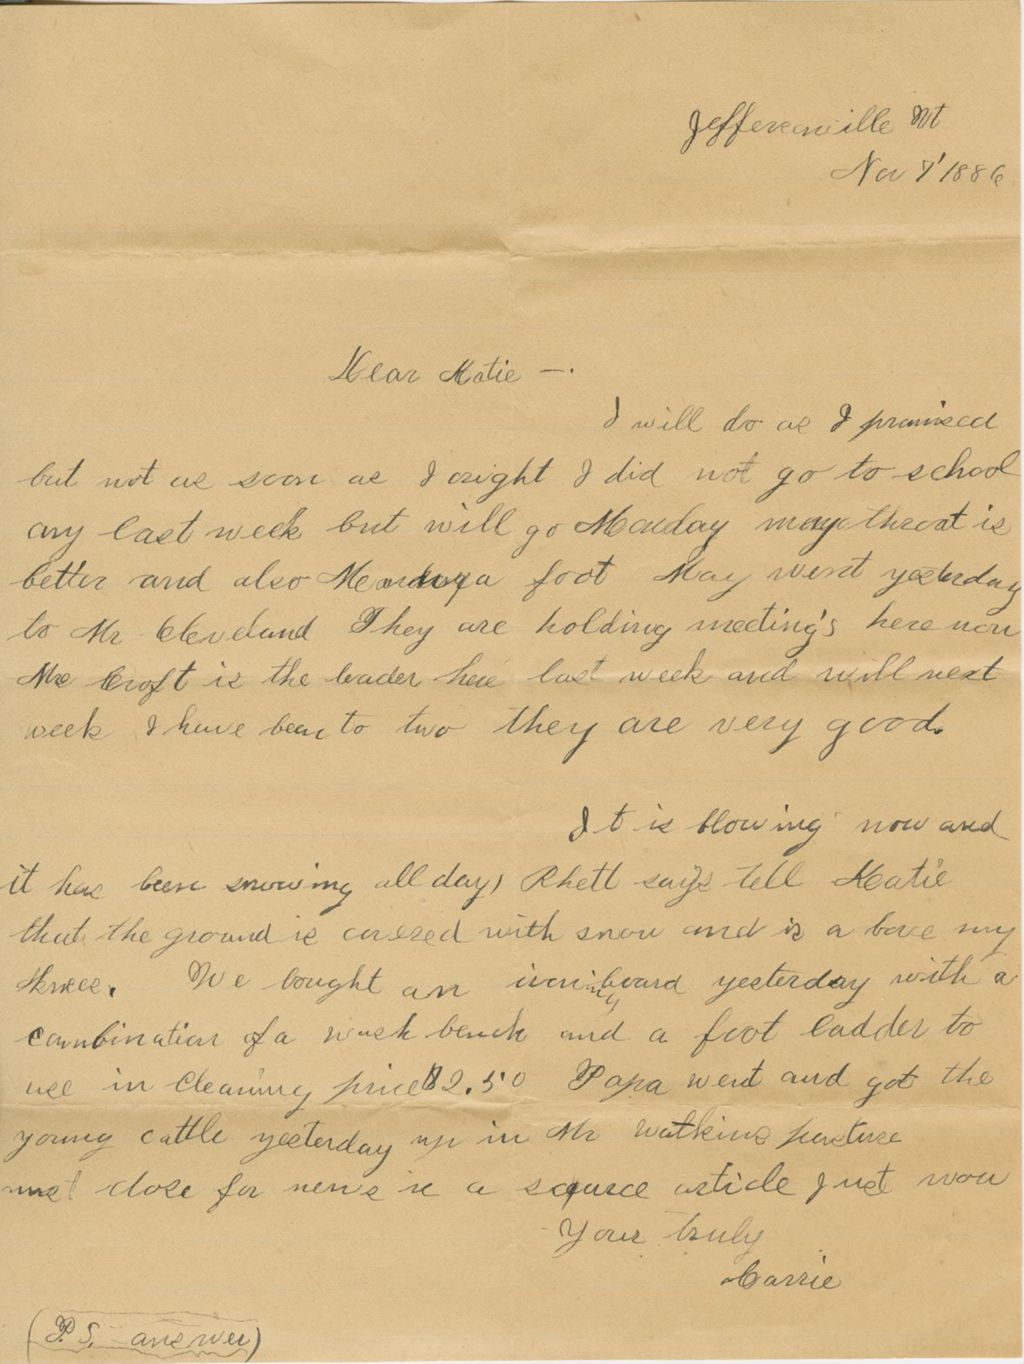 Jeffersonville Vt
Nov 7' 1886
Dear Katie —.
I will do as I promised
but not as soon as I might I did not go to school
any last week but will go Monday my throat is
better and also foot May went yesterday
to Mr Cleveland They are holding meeting's here now
Mr Croft is the leader here last week and will next
week I have been to two they are very good.
It is blowing now and
it has been snowing all day, Rhett says tell Katie
that the ground is covered with snow and is a bove my
knees. We bought an ironing board yesterday with a
combination of a wash bench and a foot ladder to
use in cleaning price $2.50 Papa went and got the
young cattle yesterday up in Mr Watkins pasture
must close for news is a scarce article Just now
Your truly
Carrie
(P.S. answer)